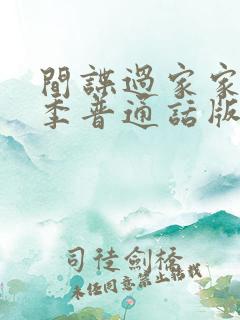 間諜過家家
季普通話版
司徒劍橋
未经同意禁止转载